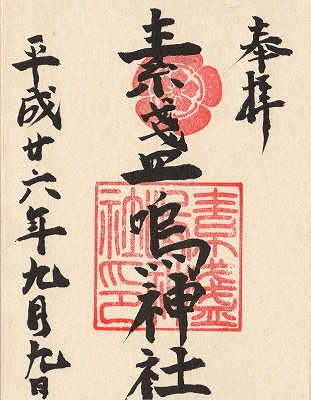 奉拝
素盞嗚神社
平成廿六年九月九日
素盞嗚神社印